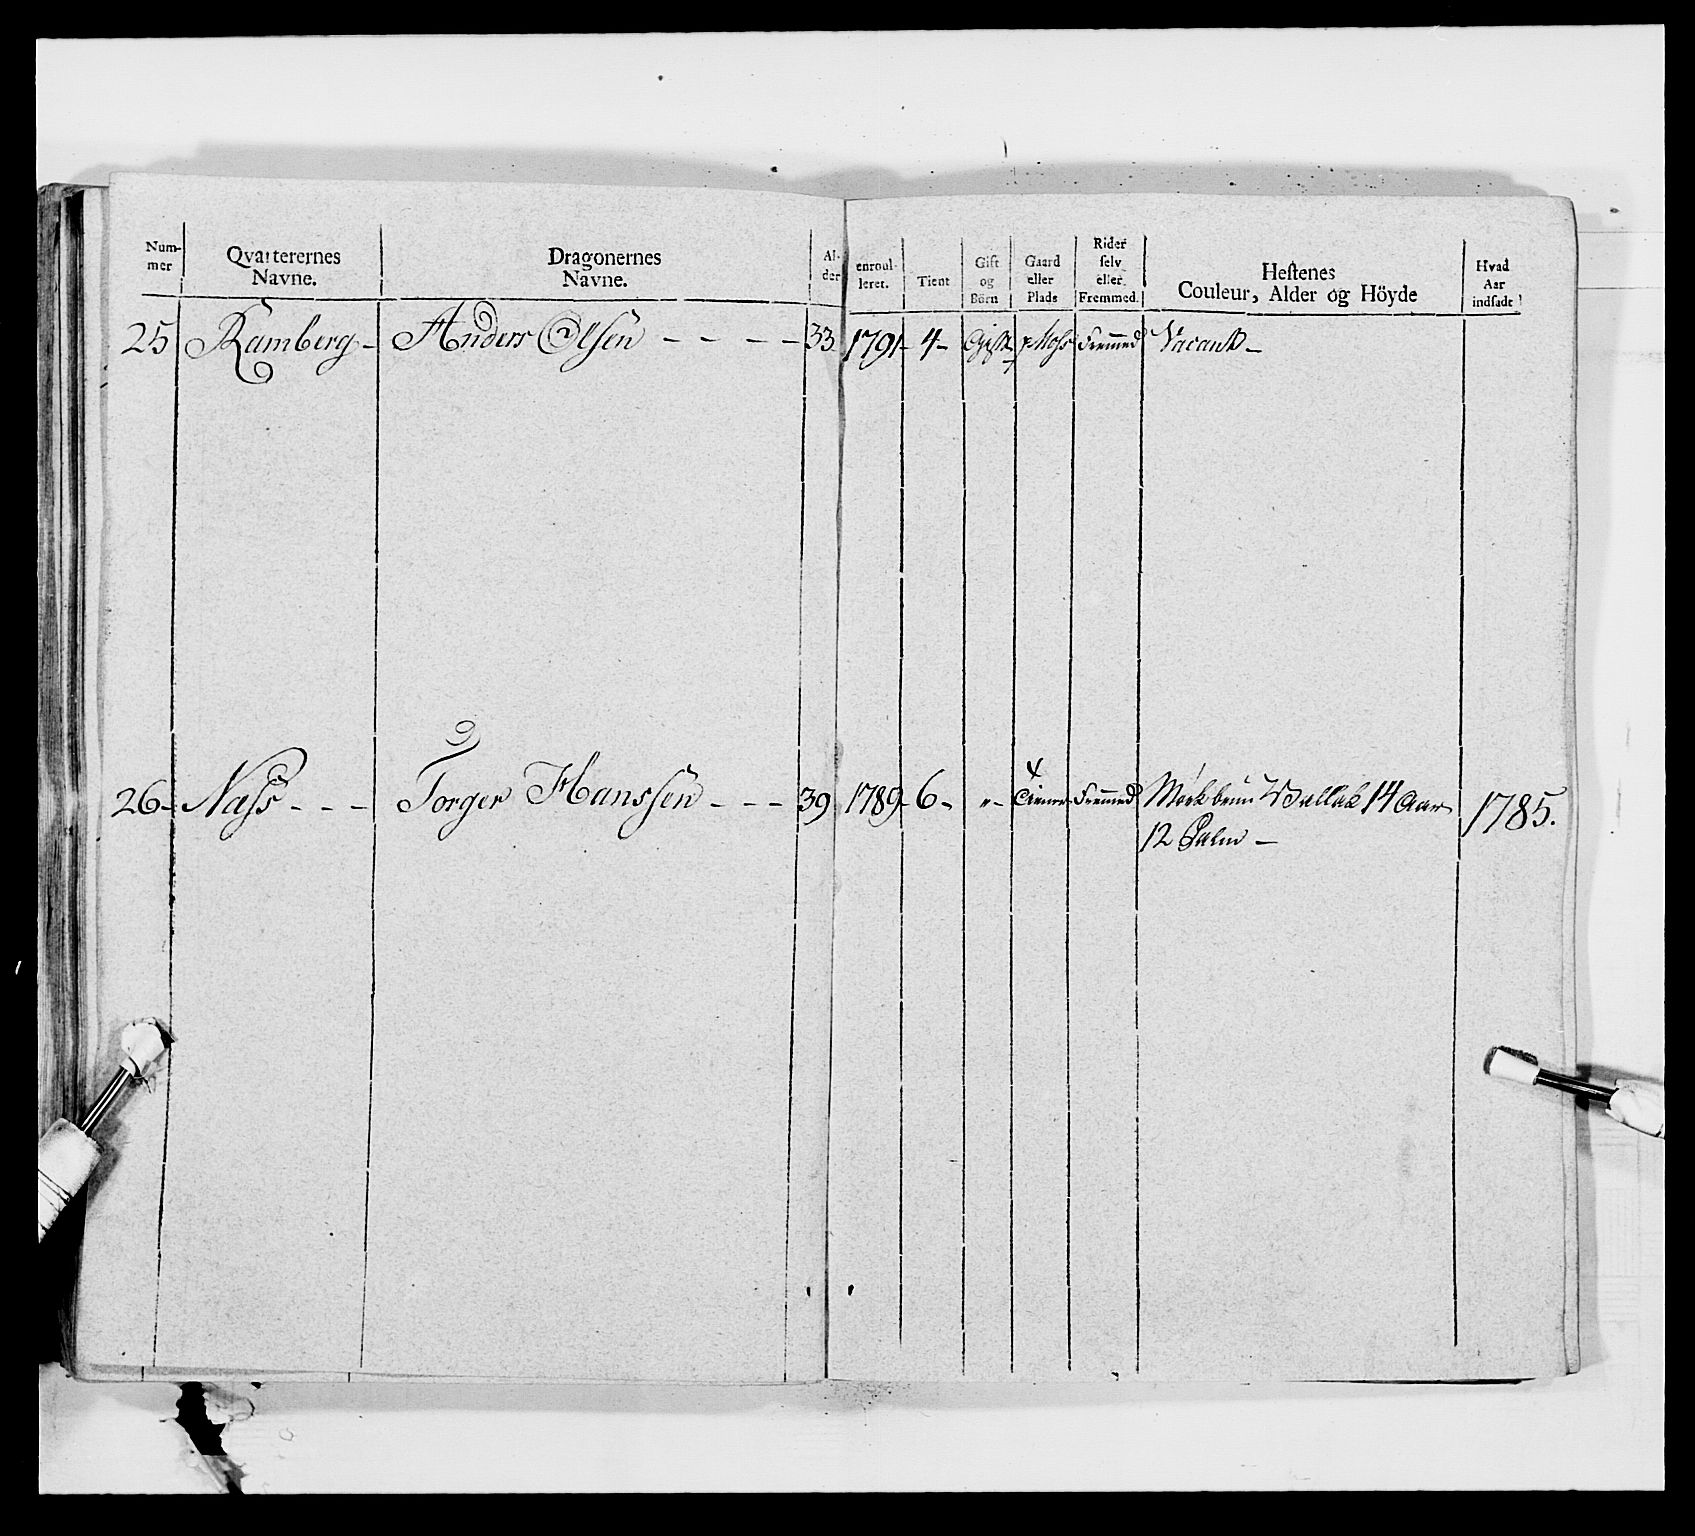 Num-
mer
Qvarterernes
Navne.
Dragonernes
Navne.
Al-
der
enroul-
leret.
Tient
Gift
og
Börn
Gaard
eller
Plads
Rider
selv
eller
Fremmed.
Hestenes
Couleur, Alder og Höyde
Hvad
Aar
indsadt
25 Ramberg - Anders Olsen - - - - 33 1791 - 4 - Gift Moss Fremmed Vacant -
26 - Næss - - - Torger Hanssen - - - 39 1789 - 6 - " - Tiener Fremmed Mörkbruun Wallak 14 Aar 1785.
12 Palm -